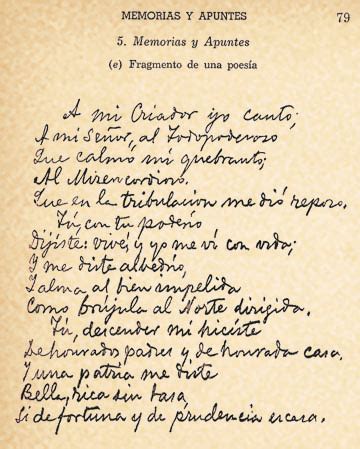 MEMORIAS Y APUNTES 79
5. Memorias y Apuntes
(e) Fragmento de una poesía
A mi Criador yo canto;
A mi Señor, al Todopoderoso
Que calmó mi quebranto;
Al Misericordioso.
Que en la tribulacion me dió reposo.
Tú, con tu poderío
Dijiste: vive, y yo me ví con vida;
Y me diste albedrío,
Y alma al bien impelida
Como brújula al Norte dirigida.
Tú, descender mi hiciste
De honrados padres y de honrada casa.
Y una patria me diste
Bella, rica sin tasa,
Si de fortuna y de prudencia escasa.